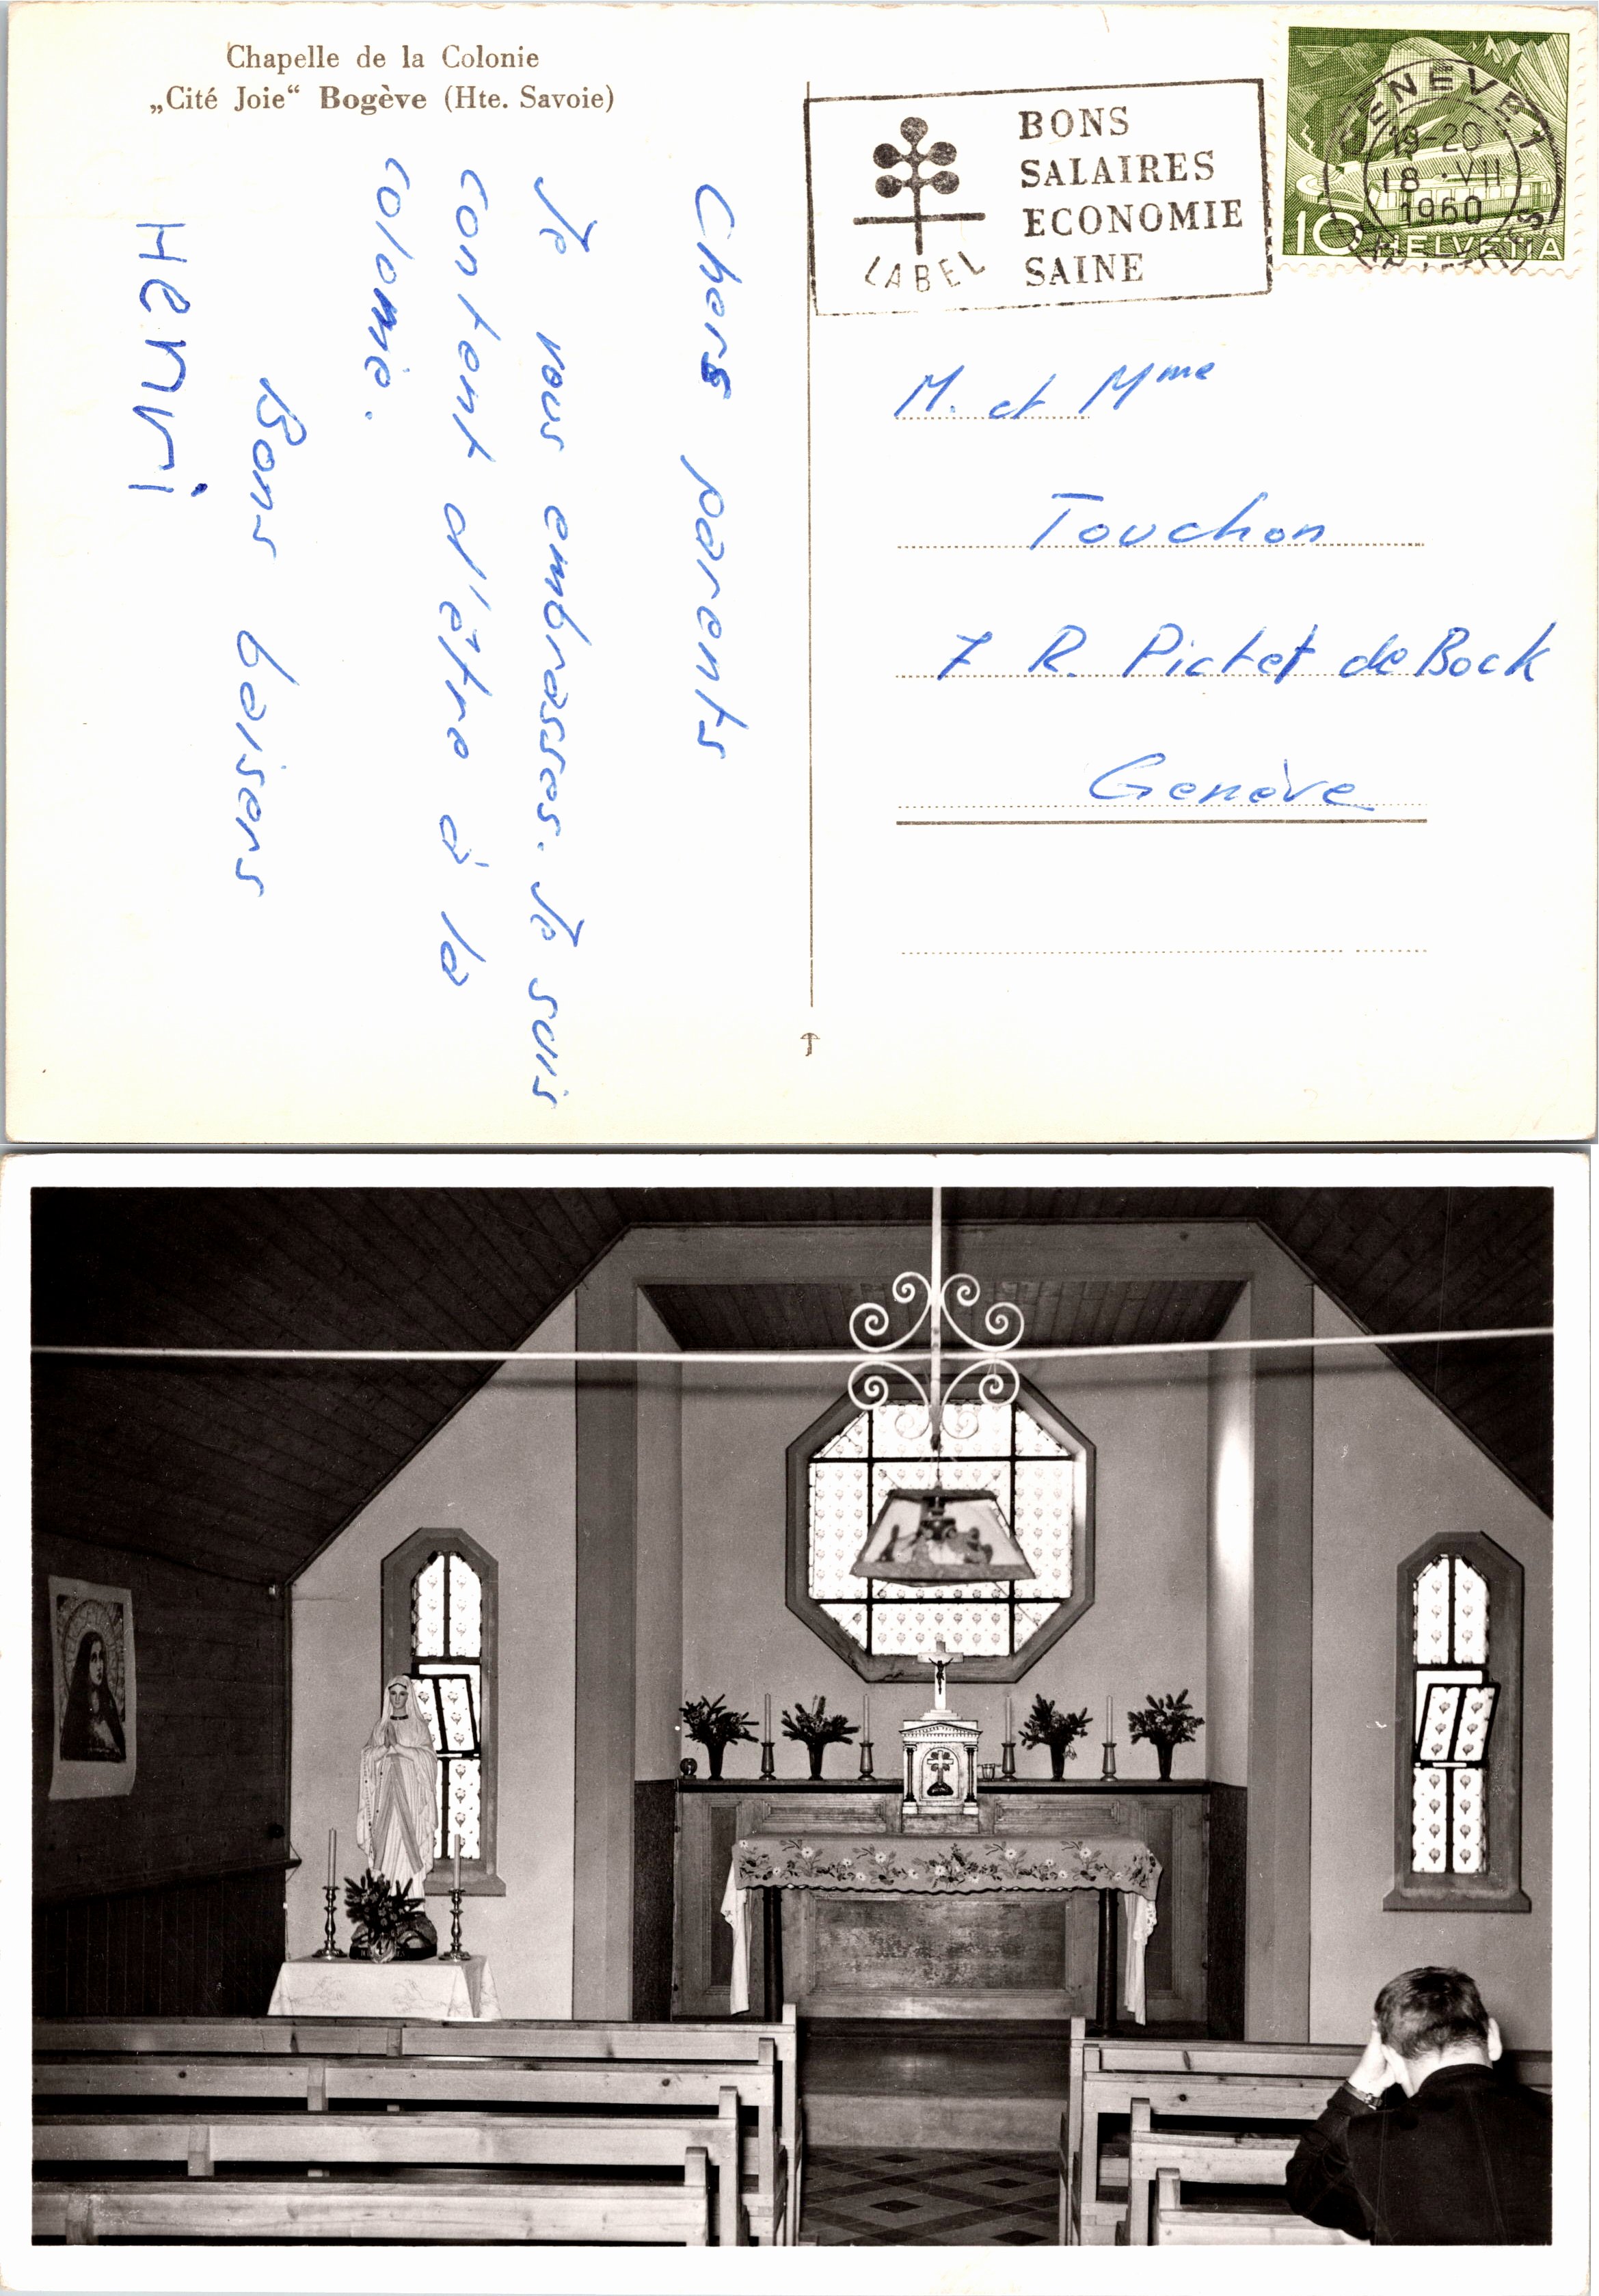 Chapelle de la Colonie
„Cité Joie“ Bogève (Hte. Savoie)
Chers parents
Je vous embrasses. Je suis
content d'être à la
colonie.
Bons baisers
Henri
LABEL
BONS
SALAIRES
ECONOMIE
SAINE
GENÈVE 1
19-20
18.VII
1960
10 HELVETIA
M. et Mme
Touchon
7 R. Pictet de Bock
Genève